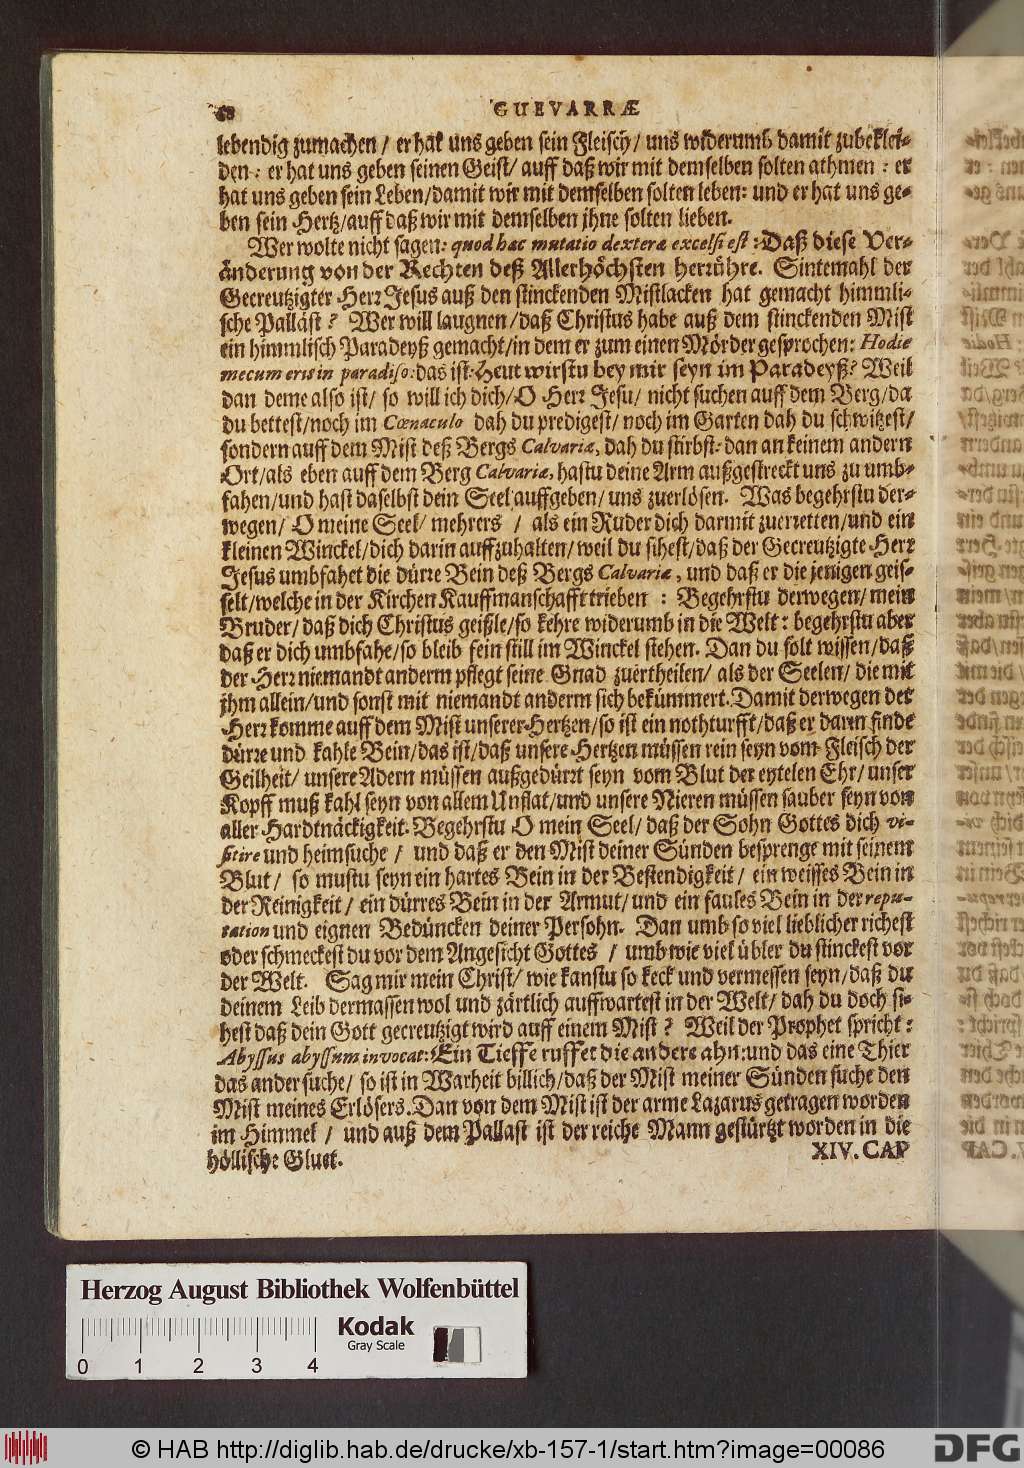 68 GUEVARRÆ
lebendig zumachen / er hat uns geben sein Fleisch / uns widerumb damit zubeklei-
den: er hat uns geben seinen Geist / auff daß wir mit demselben solten athmen: er
hat uns geben sein Leben / damit wir mit demselben solten leben: und er hat uns ge-
ben sein Hertz / auff daß wir mit demselben jhne solten lieben.
Wer wolte nicht sagen: quod hac mutatio dexteræ excelsi est: Daß diese Ver-
änderung von der Rechten deß Allerhöchsten herrühre. Sintemahl der
Gecreutzigter Herr Jesus auß den stinckenden Mistlacken hat gemacht himmli-
sche Palläst? Wer will laugnen / daß Christus habe auß dem stinckenden Mist
ein himmlisch Paradeyß gemacht / in dem er zum einen Mörder gesprochen: Hodie
mecum eris in paradiso: das ist: Heut wirstu bey mir seyn im Paradeyß? Weil
dan deme also ist / so will ich dich / O Herr Jesu / nicht suchen auff dem Berg / da
du bettest / noch im Cœnaculo dah du predigest / noch im Garten dah du schwitzest /
sondern auff dem Mist deß Bergs Calvariæ, dah du stirbst: dan an keinem andern
Ort / als eben auff dem Berg Calvariæ, hastu deine Arm außgestreckt uns zu umb-
fahen / und hast daselbst dein Seel auffgeben / uns zuerlösen. Was begehrstu der-
wegen / O meine Seel / mehrers / als ein Ruder dich darmit zuerretten / und ein
kleinen Winckel / dich darin auffzuhalten / weil du sihest / daß der Gecreutzigte Herr
Jesus umbfahet die dürre Bein deß Bergs Calvariæ, und daß er die jenigen geis-
selt / welche in der Kirchen Kauffmanschafft trieben: Begehrstu derwegen / mein
Bruder / daß dich Christus geißle / so kehre widerumb in die Welt: begehrstu aber
daß er dich umbfahe / so bleib fein still im Winckel stehen. Dan du solt wissen / daß
der Herr niemandt anderm pflegt seine Gnad zuertheilen / als der Seelen / die mit
jhm allein / und sonst mit niemandt anderm sich bekümmert. Damit derwegen der
Herr komme auff dem Mist unserer Hertzen / so ist ein nothturfft / daß er darin finde
dürre und kahle Bein / das ist / daß unsere Hertzen müssen rein seyn vom Fleisch der
Geilheit / unsere Adern müssen außgedürrt seyn vom Blut der eytelen Ehr / unser
Kopff muß kahl seyn von allem Unflat / und unsere Nieren müssen sauber seyn von
aller Hardtnäckigkeit. Begehrstu O mein Seel / daß der Sohn Gottes dich vi-
sitire und heimsuche / und daß er den Mist deiner Sünden besprenge mit seinem
Blut / so mustu seyn ein hartes Bein in der Bestendigkeit / ein weisses Bein in
der Reinigkeit / ein dürres Bein in der Armut / und ein faules Bein in der repu-
tation und eignen Bedüncken deiner Persohn. Dan umb so viel lieblicher richest
oder schmeckest du vor dem Angesicht Gottes / umb wie viel übler du stinckest vor
der Welt. Sag mir mein Christ / wie kanstu so keck und vermessen seyn / daß du
deinem Leib dermassen wol und zärtlich auffwartest in der Welt / dah du doch si-
hest daß dein Gott gecreutzigt wird auff einem Mist? Weil der Prophet spricht:
Abyssus abyssum invocat: Ein Tieffe ruffet die andere ahn: und das eine Thier
das ander suche / so ist in Warheit billich / daß der Mist meiner Sünden suche den
Mist meines Erlösers. Dan von dem Mist ist der arme Lazarus getragen worden
im Himmel / und auß dem Pallast ist der reiche Mann gestürtzt worden in die
höllische Gluet.
XIV. CAP
Herzog August Bibliothek Wolfenbüttel
Kodak
Gray Scale
0 1 2 3 4
© HAB http://diglib.hab.de/drucke/xb-157-1/start.htm?image=00086
DFG